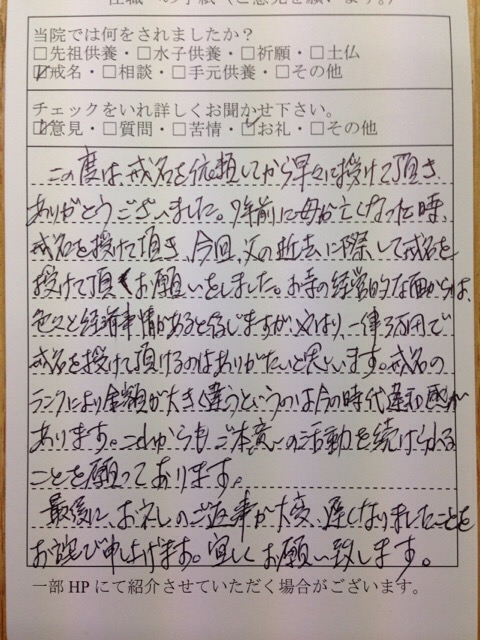 住職への手紙（ご意見を願います。）
当院では何をされましたか？
□先祖供養・□水子供養・□祈願・□土仏
☑戒名・□相談・□手元供養・□その他
チェックをいれ詳しくお聞かせ下さい。
☑意見・□質問・□苦情・☑お礼・□その他
この度は、戒名を依頼してから早々に授けて頂き
ありがとうございました。7年前に母が亡くなった時、
戒名を授けて頂き、今回、父の逝去に際して戒名を
授けて頂くお願いをしました。お寺の経営的な面からは、
色々と経済事情があると信じますが、やはり、一律3万円で
戒名を授けて頂けるのはありがたいと思います。戒名の
ランクにより金額が大きく違うというのは今の時代違和感が
あります。これからもご本意の活動を続けられる
ことを願っております。
最後に、お礼のご返事が大変、遅くなりましたことを
お詫び申し上げます。宜しくお願い致します。
一部HPにて紹介させていただく場合がございます。